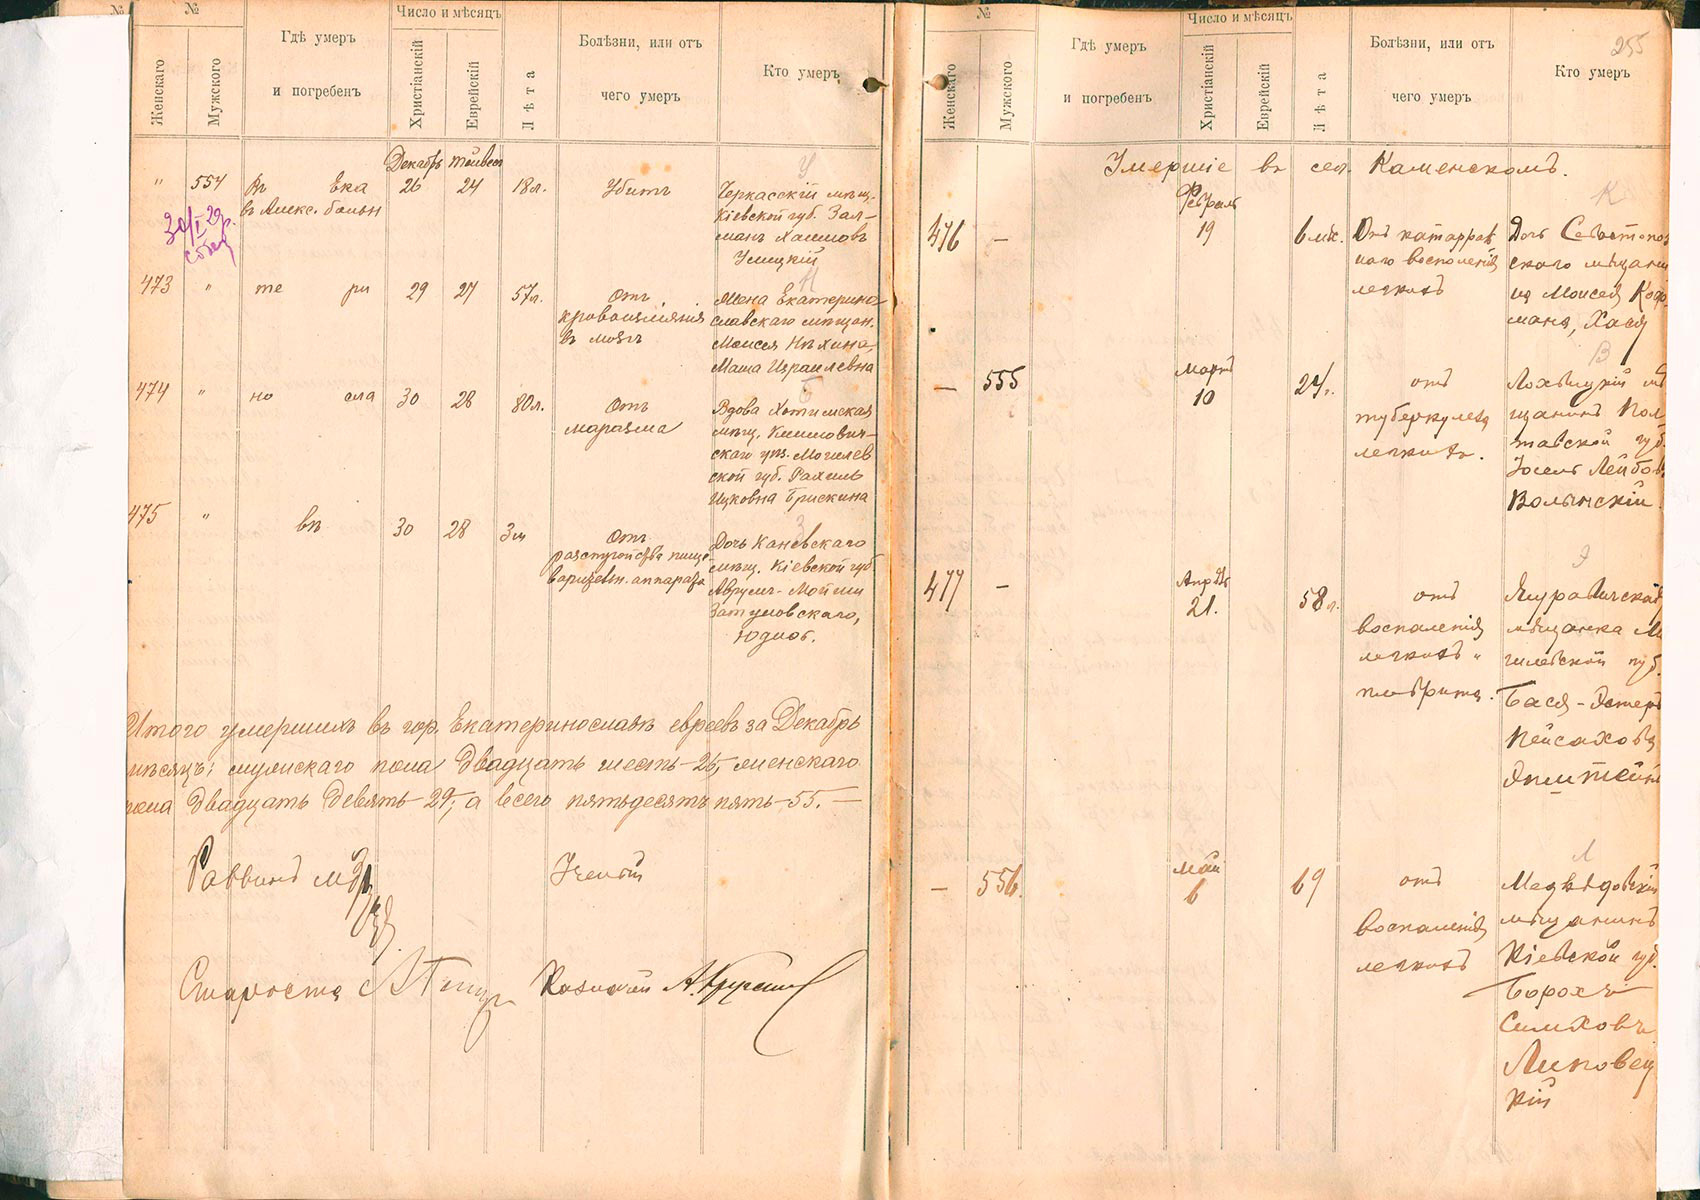 №
№
Женскаго
Мужского
Гдѣ умеръ
и погребенъ
Число и мѣсяцъ
Христіанскій
Еврейскій
Лѣта
Болѣзни, или отъ
чего умеръ
Кто умеръ
Декабрь Тейвесъ
У
" 554 Въ Ека 26 24 18л. Убитъ
въ Алекс. больн
Черкасскій мѣщ.
Кіевской губ. Зал-
манъ Хаимовъ
Улицкій
Н
473 " те ри 29 27 57л. Отъ
кровоизліянія
въ мозгъ
Жена Екатерино
славскаго мѣщан.
Моисея Нѣхина,
Маша Израилевна
Б
474 " но сла 30 28 80л. Отъ
маразма
Вдова Хотимская
мѣщ. Климович-
скаго уѣз. Могилев
ской губ. Рахиль
Ицковна Брискина
З
475 " вѣ 30 28 3м Отъ
разстройства пище-
варител. аппарата
Дочь Каневскаго
мѣщ. Кіевской губ
Аврумъ-Мойши
Затуловскаго,
Юдиѳ.
Итого умершихъ въ гор. Екатеринославѣ евреевъ за Декабрь
мѣсяцъ: мужскаго пола двадцать шесть-26, женскаго
пола двадцать девять-29; а всего пятьдесятъ пять-55. —
Раввинъ
Ученый
Староста
Казначей
№
Женскаго
Мужского
Гдѣ умеръ
и погребенъ
Число и мѣсяцъ
Христіанскій
Еврейскій
Лѣта
Болѣзни, или отъ
чего умеръ
Кто умеръ
255
Умершіе въ сел. Каменскомъ.
К
Февраль
476 — 19 6 мѣс. Отъ катарраль
наго воспаленія
легкихъ
Дочь Севастопол
скаго мѣщани
на Моисея Коф-
мана, Хася
В
Мартъ
— 555 10 24г. отъ
туберкулеза
легкихъ.
Лохвицкій мѣ
щанинъ Пол
тавской губ.
Іосель Лейбов.
Волынскій.
Э
Апрѣль
477 — 21. 58л. отъ
воспаленія
легкихъ и
плеврита.
Журавичская
мѣщанка Мо
гилевской губ.
Бася-Эстеръ
Пейсахова
Эпштейнъ
Л
Май
— 556. 6 69 отъ
воспаленія
легкихъ
Медвѣдовскій
мѣщанинъ
Кіевской губ.
Борохъ
Симховъ
Липовец
кій